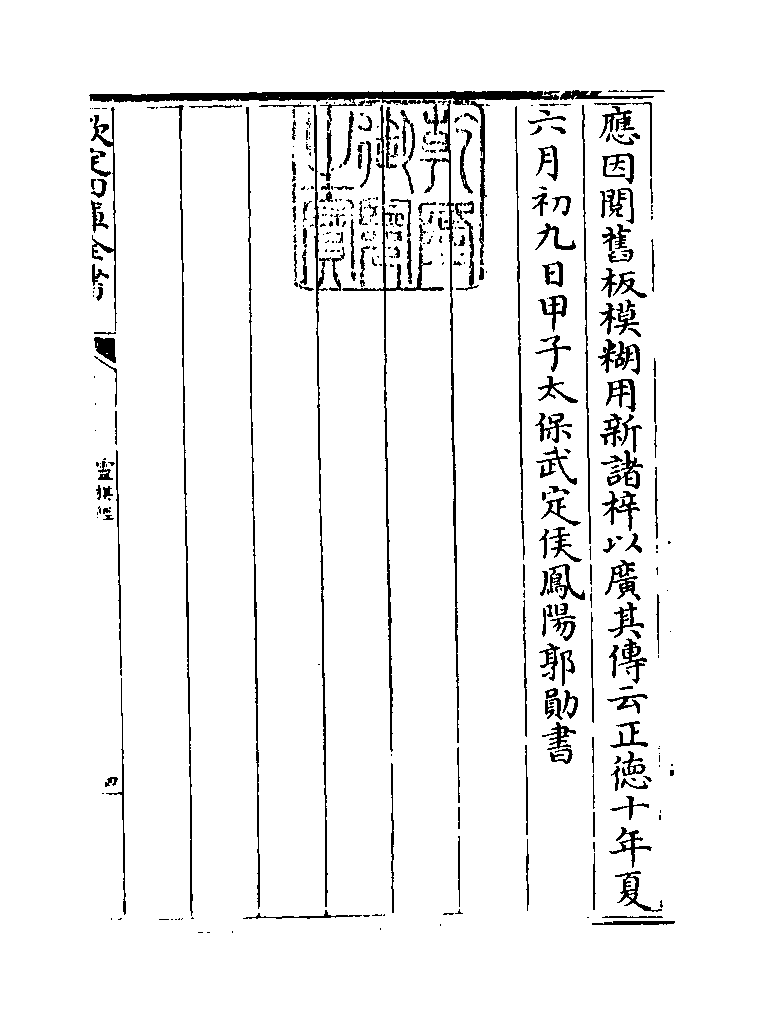 應因閱舊板模糊用新諸梓以廣其傳云正徳十年夏
六月初九日甲子太保武定侯鳳陽郭勛書
乾隆
御覽
之寳
欽定四庫全書
靈棋經
四